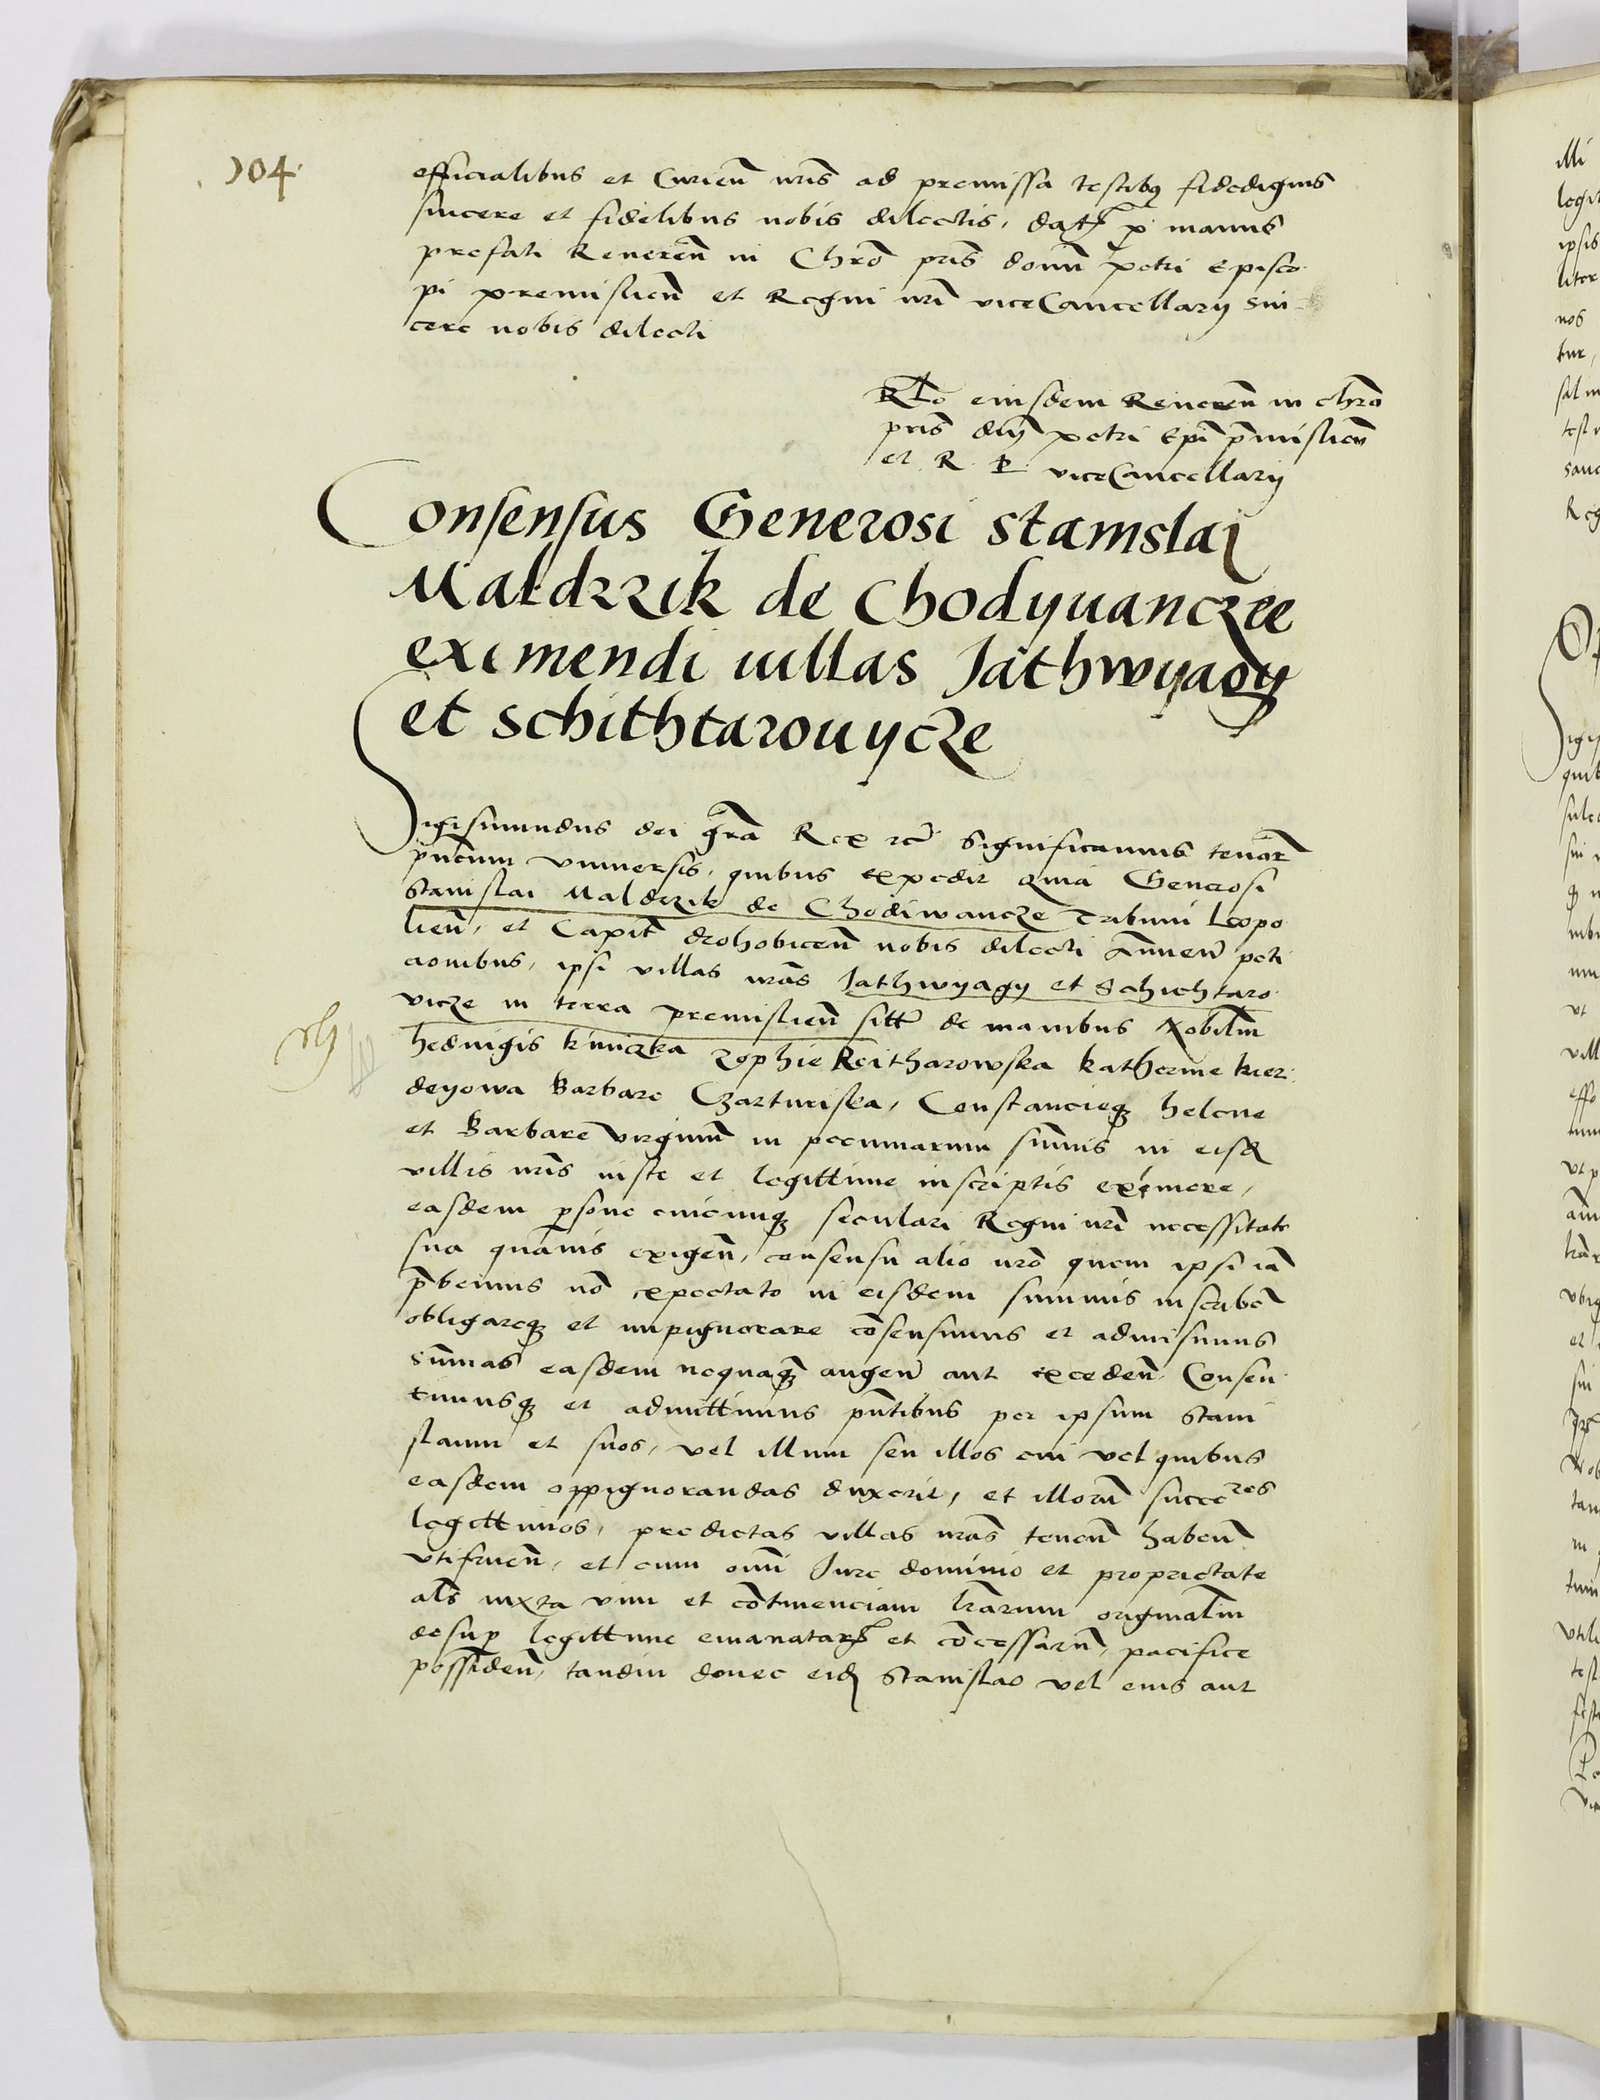 104
officialibus et Curien nris ad premissa testibq fidedignis
sincere et fidelibus nobis dilectis, dat p manus
prefati Reueren in Chro pris domi Petri Episco
pi premislien et Regni nri viceCancellarij sin-
cere nobis dilecti
Rlo eiusdem Reueren in chro
pris dnj petri Epi pmislien
et R. P. viceCancellarij
Consensus Generosi stanislai
Maldrzik de Chodyuanczee
eximendi uillas Jathwyagy
et schithtarouycze
Sigismundus dei gra Rex etc Significamus tenor
pntium vniuersis, quibus expedit quia Generosi
Stanislai Maldrzik de Chodiwancze Tribuni Leopo
lien, et Capit drohobicen nobis dilecti annuen peti
cionibus, ipsi villas nras Jathwyagy et Schichtaro
vicze in terra premislien sitt de manibus Nobilim
heduigis kuniczka zophie Reitharowska katherine kier
deyowa Barbare Czarturiska, Constancieq helene
et Barbare virginum in pecuniarum summis in eisd
villis nris iuste et legittime inscriptis eximere,
easdem psone cuicunq seculari Regni nri necessitate
sua quauis exigen, consensu alio nro quem ipsi ia
pbemus no expectato in eisdem summis inscribe
obligareq et impignorare cosensimus et admisimus
summas easdem nequaq augen aut exceden Consen
timusq et admittimus pntibus per ipsum Stani
slaum et suos, vel illum seu illos cui vel quibus
easdem oppignorandas duxerit, et illorum succeres
legittimos, predictas villas nras tenen haben
vtifruen, et cum omi Jure dominio et proprietate
als iuxta vim et cotinenciam lrarum originalim
desup legittime emanatar et cocessarum, pacifice
possiden, tandiu donec eid Stanislao vel eius aut